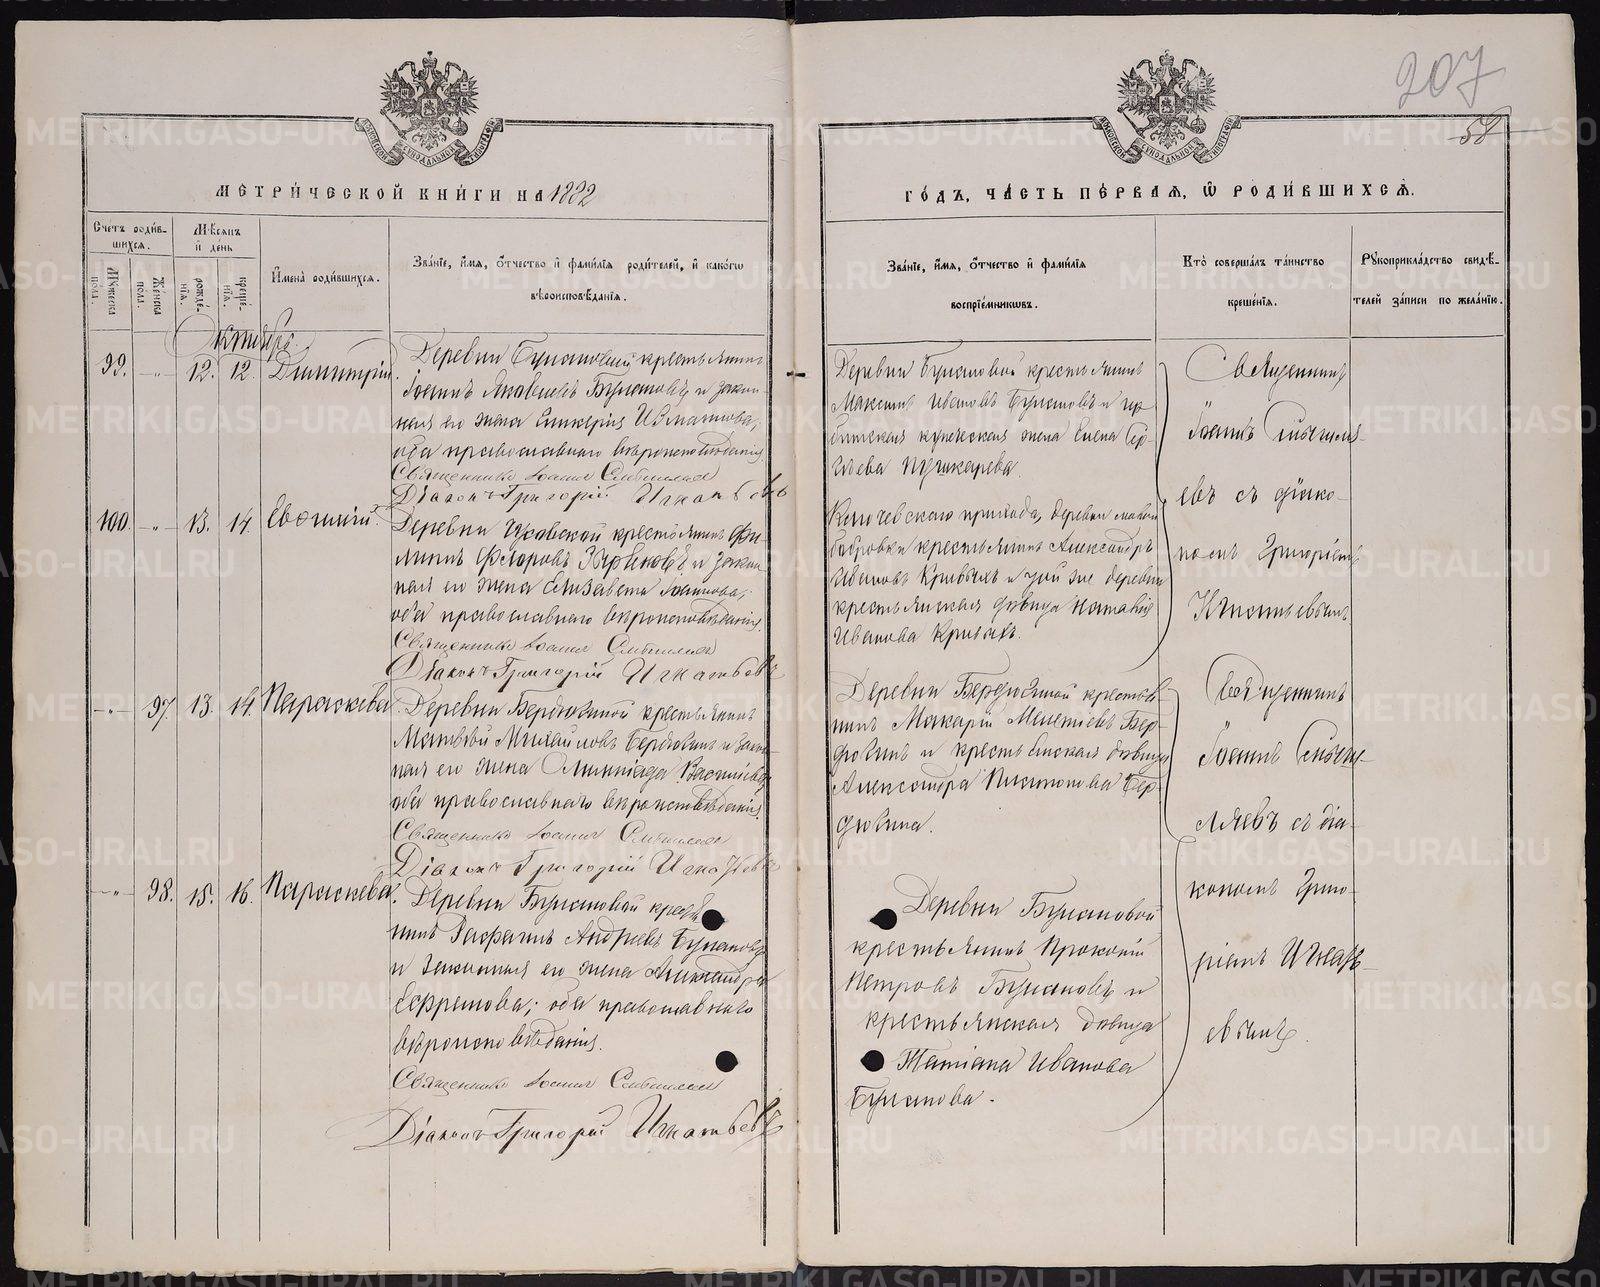 207
58
МЕТРИ́ЧЕСКОЙ КНИ́ГИ НА 1882
ГО́ДЪ, ЧА́СТЬ ПЕ́РВАЯ, Ѡ РОДИ́ВШИХСЯ.
Счетъ роди́в-
шихся.
Мѣсяцъ
и҆ де́нь
Мꙋжеска
пола.
Же́нска
по́ла.
рожде́-
нїѧ.
креще́-
нїѧ.
И҆мена̀ роди́вшихся.
Зва́нїе, и҆́мѧ, ѻ҆́тчество и҆ фами́лїѧ роди́телей, и҆ како́гѡ
вѣроисповѣ́данїѧ.
Зва́нїе, и҆́мѧ, ѻ҆́тчество и҆ фами́лїѧ
воспрїе́мникѡвъ.
Кто̀ соверша́лъ та́инство
креще́нїѧ.
Рꙋкоприкла́дство свидѣ́-
телей за́писи по жела́нїю.
Октябрь.
99. -„- 12. 12. Димитрій.
Деревни Булановой крестьянинъ
Іоаннъ Яковлевъ Булановъ и закон-
ная его жена Гликерія Игнатьева,
оба православнаго вѣроисповѣданія
Священникъ Іоаннъ
Діаконъ Григорій Игнатьевъ
Деревни Булановой крестьянинъ
Максимъ Ивановъ Булановъ и ир-
битская купеческая жена Елена Сер-
гѣева Пушкарева.
Священникъ
Іоаннъ
евъ съ діако-
номъ Григоріемъ
Игнатьевымъ
100. -„- 13. 14. Евѳимій.
Деревни крестьянинъ Фи-
липпъ Ѳедоровъ и закон-
ная его жена Елизавета Іоаннова,
оба православнаго вѣроисповѣданія.
Священникъ Іоаннъ
Діаконъ Григорій Игнатьевъ
прихода, деревни малой
бобровки крестьянинъ Александръ
Ивановъ Кривыхъ и той же деревни
крестьянская дѣвица Наталія
Иванова Кривыхъ.
-„- 97. 13. 14. Параскева.
Деревни Бердюгиной крестьянинъ
Матвѣй Михайловъ Бердюгинъ и закон-
ная его жена Олимпіада Васильева,
оба православнаго вѣроисповѣданія.
Священникъ Іоаннъ
Діаконъ Григорій Игнатьевъ
Деревни Бердюгиной крестья-
нинъ Макарій Мелетіевъ Бер-
дюгинъ и крестьянская дѣвица
Александра Бер-
дюгина.
Священникъ
Іоаннъ
ляевъ съ діа-
кономъ Григо-
ріемъ Игнать-
евымъ.
-„- 98. 15. 16. Параскева.
Деревни Булановой крестья-
нинъ Андреевъ Булановъ
и законная его жена Александра
Ефремова; оба православнаго
вѣроисповѣданія.
Священникъ Іоаннъ
Діаконъ Григорій Игнатьевъ
Деревни Булановой
крестьянинъ Прокопій
Петровъ Булановъ и
крестьянская дѣвица
Татіана Иванова
Буланова.